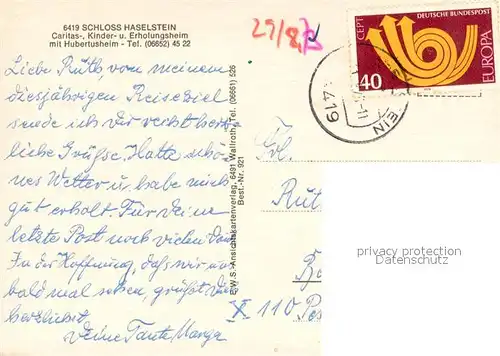 6419 SCHLOSS HASELSTEIN
Caritas-, Kinder- u. Erholungsheim
mit Hubertusheim - Tel. (06652) 45 22
Liebe Ruth von meinem
diesjährigen Reiseziel
sende ich dir recht herz
liche Grüße. Hatte schö
nes Wetter u. habe mich
gut erholt. Für deine
letzte Post noch vielen Dank
In der Hoffnung, daß wir uns
bald mal sehen, grüßt dich
herzlichst
deine Tante Marga
E.W.S.-Ansichtskartenverlag, 6491 Wallroth, Tel. (06661) 526
Best.-Nr. 921
29/8.
CEPT
DEUTSCHE BUNDESPOST
EUROPA
40
6419
Frl.
Ruth
X 110
privacy protection
Datenschutz